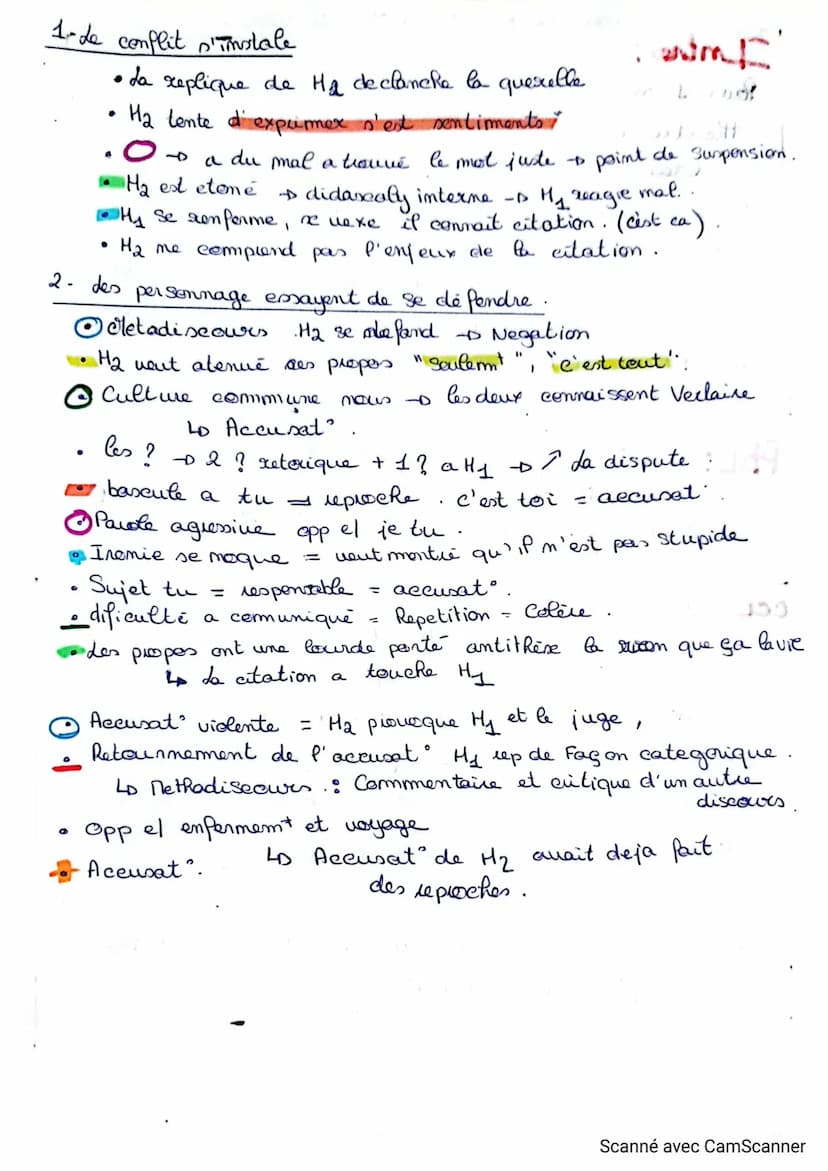 1- Le conflit s'instale
• La replique de H2 declanche la querelle
• H2 tente d'exprimer s'est sentiments
• → a du mal a trouvé le mot juste → point de suspension.
• H2 est etoné → didascaly interne → H1 reagie mal.
• H1 se renferme, se vexe il connait citation. (c'est ca).
• H2 ne comprend pas l'enjeux de la citation.
2- des personnage essayent de se défendre.
Metadiscours. H2 se defand → Negation
• H2 veut atenué ses propos "seulemt", "c'est tout".
Culture commune nous → les deux connaissent Verlaire
↳ Accusat°.
• les ? → 2 ? retorique + 1 ? a H1 → ↗ la dispute :
bascule a tu = reproche. c'est toi = accusat°
Parole agressive opp el je tu.
• Ironie se moque = veut montré qu'il n'est pas stupide
• Sujet tu = responsable = accusat°.
• dificulté a comuniqué = Repetition = Colère.
• Les propos ont une lourde porté antithèse la que ça la vie
↳ La citation a touche H1
Accusat° violente = H2 provoque H1 et le juge,
• Retournnement de l'accusat° H1 rep de façon categorique.
↳ Methodiscours : Commmentaire et critique d'un autre
discours.
• Opp el enfermemt et voyage
• Accusat°. ↳ Accusat° de H2 avait deja fait
des reproches.
Scanné avec CamScanner